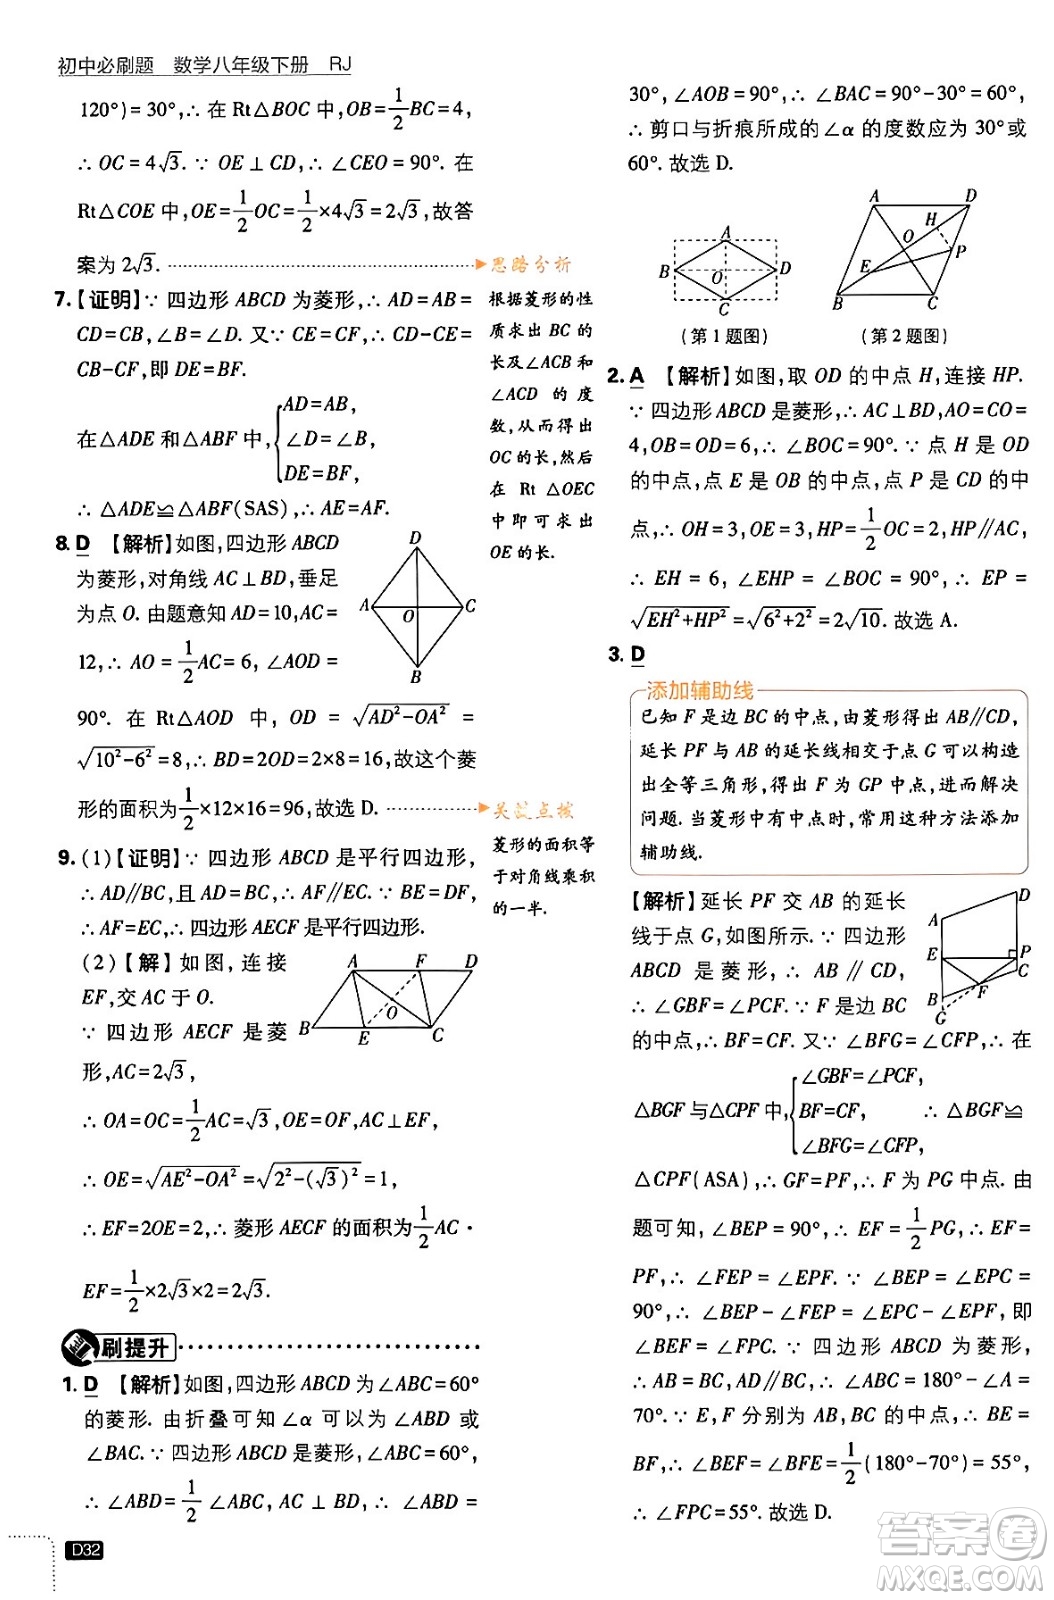 初中必刷题 数学八年级下册 RJ
120°)=30°,∴ 在 Rt△BOC 中,OB=1/2BC=4,
∴ OC=4√3. ∵ OE⊥CD,∴ ∠CEO=90°. 在
Rt△COE 中,OE=1/2OC=1/2×4√3=2√3,故答
案为 2√3.
思路分析
根据菱形的性
质求出 BC 的
长及∠ACB 和
∠ACD 的度
数,从而得出
OC 的长,然后
在 Rt △OEC
中即可求出
OE 的长.
7.【证明】∵ 四边形 ABCD 为菱形,∴ AD=AB=
CD=CB,∠B=∠D. 又∵ CE=CF,∴ CD-CE=
CB-CF,即 DE=BF.
在△ADE 和△ABF 中,{AD=AB,
∠D=∠B,
DE=BF,
∴ △ADE≌△ABF(SAS),∴ AE=AF.
8. D 【解析】如图,四边形 ABCD
为菱形,对角线 AC⊥BD,垂足
为点 O. 由题意知 AD=10,AC=
12,∴ AO=1/2AC=6,∠AOD=
90°. 在 Rt△AOD 中,OD=√(AD²-OA²)=
√(10²-6²)=8,∴ BD=2OD=2×8=16,故这个菱
形的面积为1/2×12×16=96,故选 D.
D
A
O
C
B
关键点拨
菱形的面积等
于对角线乘积
的一半.
9. (1)【证明】∵ 四边形 ABCD 是平行四边形,
∴ AD∥BC,且 AD=BC,∴ AF∥EC. ∵ BE=DF,
∴ AF=EC,∴ 四边形 AECF 是平行四边形.
(2)【解】如图,连接
EF,交 AC 于 O.
∵ 四边形 AECF 是菱
形,AC=2√3,
A F D
O
B E C
∴ OA=OC=1/2AC=√3,OE=OF,AC⊥EF,
∴ OE=√(AE²-OA²)=√(2²-(√3)²)=1,
∴ EF=2OE=2,∴ 菱形 AECF 的面积为1/2AC·
EF=1/2×2√3×2=2√3.
刷提升
1. D 【解析】如图,四边形 ABCD 为∠ABC=60°
的菱形. 由折叠可知∠α 可以为∠ABD 或
∠BAC. ∵ 四边形 ABCD 是菱形,∠ABC=60°,
∴ ∠ABD=1/2∠ABC,AC⊥BD,∴ ∠ABD=
D32
30°,∠AOB=90°,∴ ∠BAC=90°-30°=60°,
∴ 剪口与折痕所成的∠α 的度数应为 30°或
60°. 故选 D.
A
B O D
C
(第 1 题图)
A D
H
O P
E
B C
(第 2 题图)
2. A 【解析】如图,取 OD 的中点 H,连接 HP.
∵ 四边形 ABCD 是菱形,∴ AC⊥BD,AO=CO=
4,OB=OD=6,∴ ∠BOC=90°. ∵ 点 H 是 OD
的中点,点 E 是 OB 的中点,点 P 是 CD 的中
点,∴ OH=3,OE=3,HP=1/2OC=2,HP∥AC,
∴ EH=6,∠EHP=∠BOC=90°,∴ EP=
√(EH²+HP²)=√(6²+2²)=2√10. 故选 A.
3. D
添加辅助线
已知 F 是边 BC 的中点,由菱形得出 AB∥CD,
延长 PF 与 AB 的延长线相交于点 G 可以构造
出全等三角形,得出 F 为 GP 中点,进而解决
问题. 当菱形中有中点时,常用这种方法添加
辅助线.
【解析】延长 PF 交 AB 的延长
线于点 G,如图所示. ∵ 四边形
ABCD 是菱形,∴ AB∥CD,
∴ ∠GBF=∠PCF. ∵ F 是边 BC
的中点,∴ BF=CF. 又∵ ∠BFG=∠CFP,∴ 在
D
A
E P
C
B F
G
△BGF 与△CPF 中,{∠GBF=∠PCF,
BF=CF,
∠BFG=∠CFP,
∴ △BGF≌
△CPF(ASA),∴ GF=PF,∴ F 为 PG 中点. 由
题可知,∠BEP=90°,∴ EF=1/2PG,∴ EF=
PF,∴ ∠FEP=∠EPF. ∵ ∠BEP=∠EPC=
90°,∴ ∠BEP-∠FEP=∠EPC-∠EPF,即
∠BEF=∠FPC. ∵ 四边形 ABCD 为菱形,
∴ AB=BC,AD∥BC,∴ ∠ABC=180°-∠A=
70°. ∵ E,F 分别为 AB,BC 的中点,∴ BE=
BF,∴ ∠BEF=∠BFE=1/2(180°-70°)=55°,
∴ ∠FPC=55°. 故选 D.
答案圈
MXQE.COM